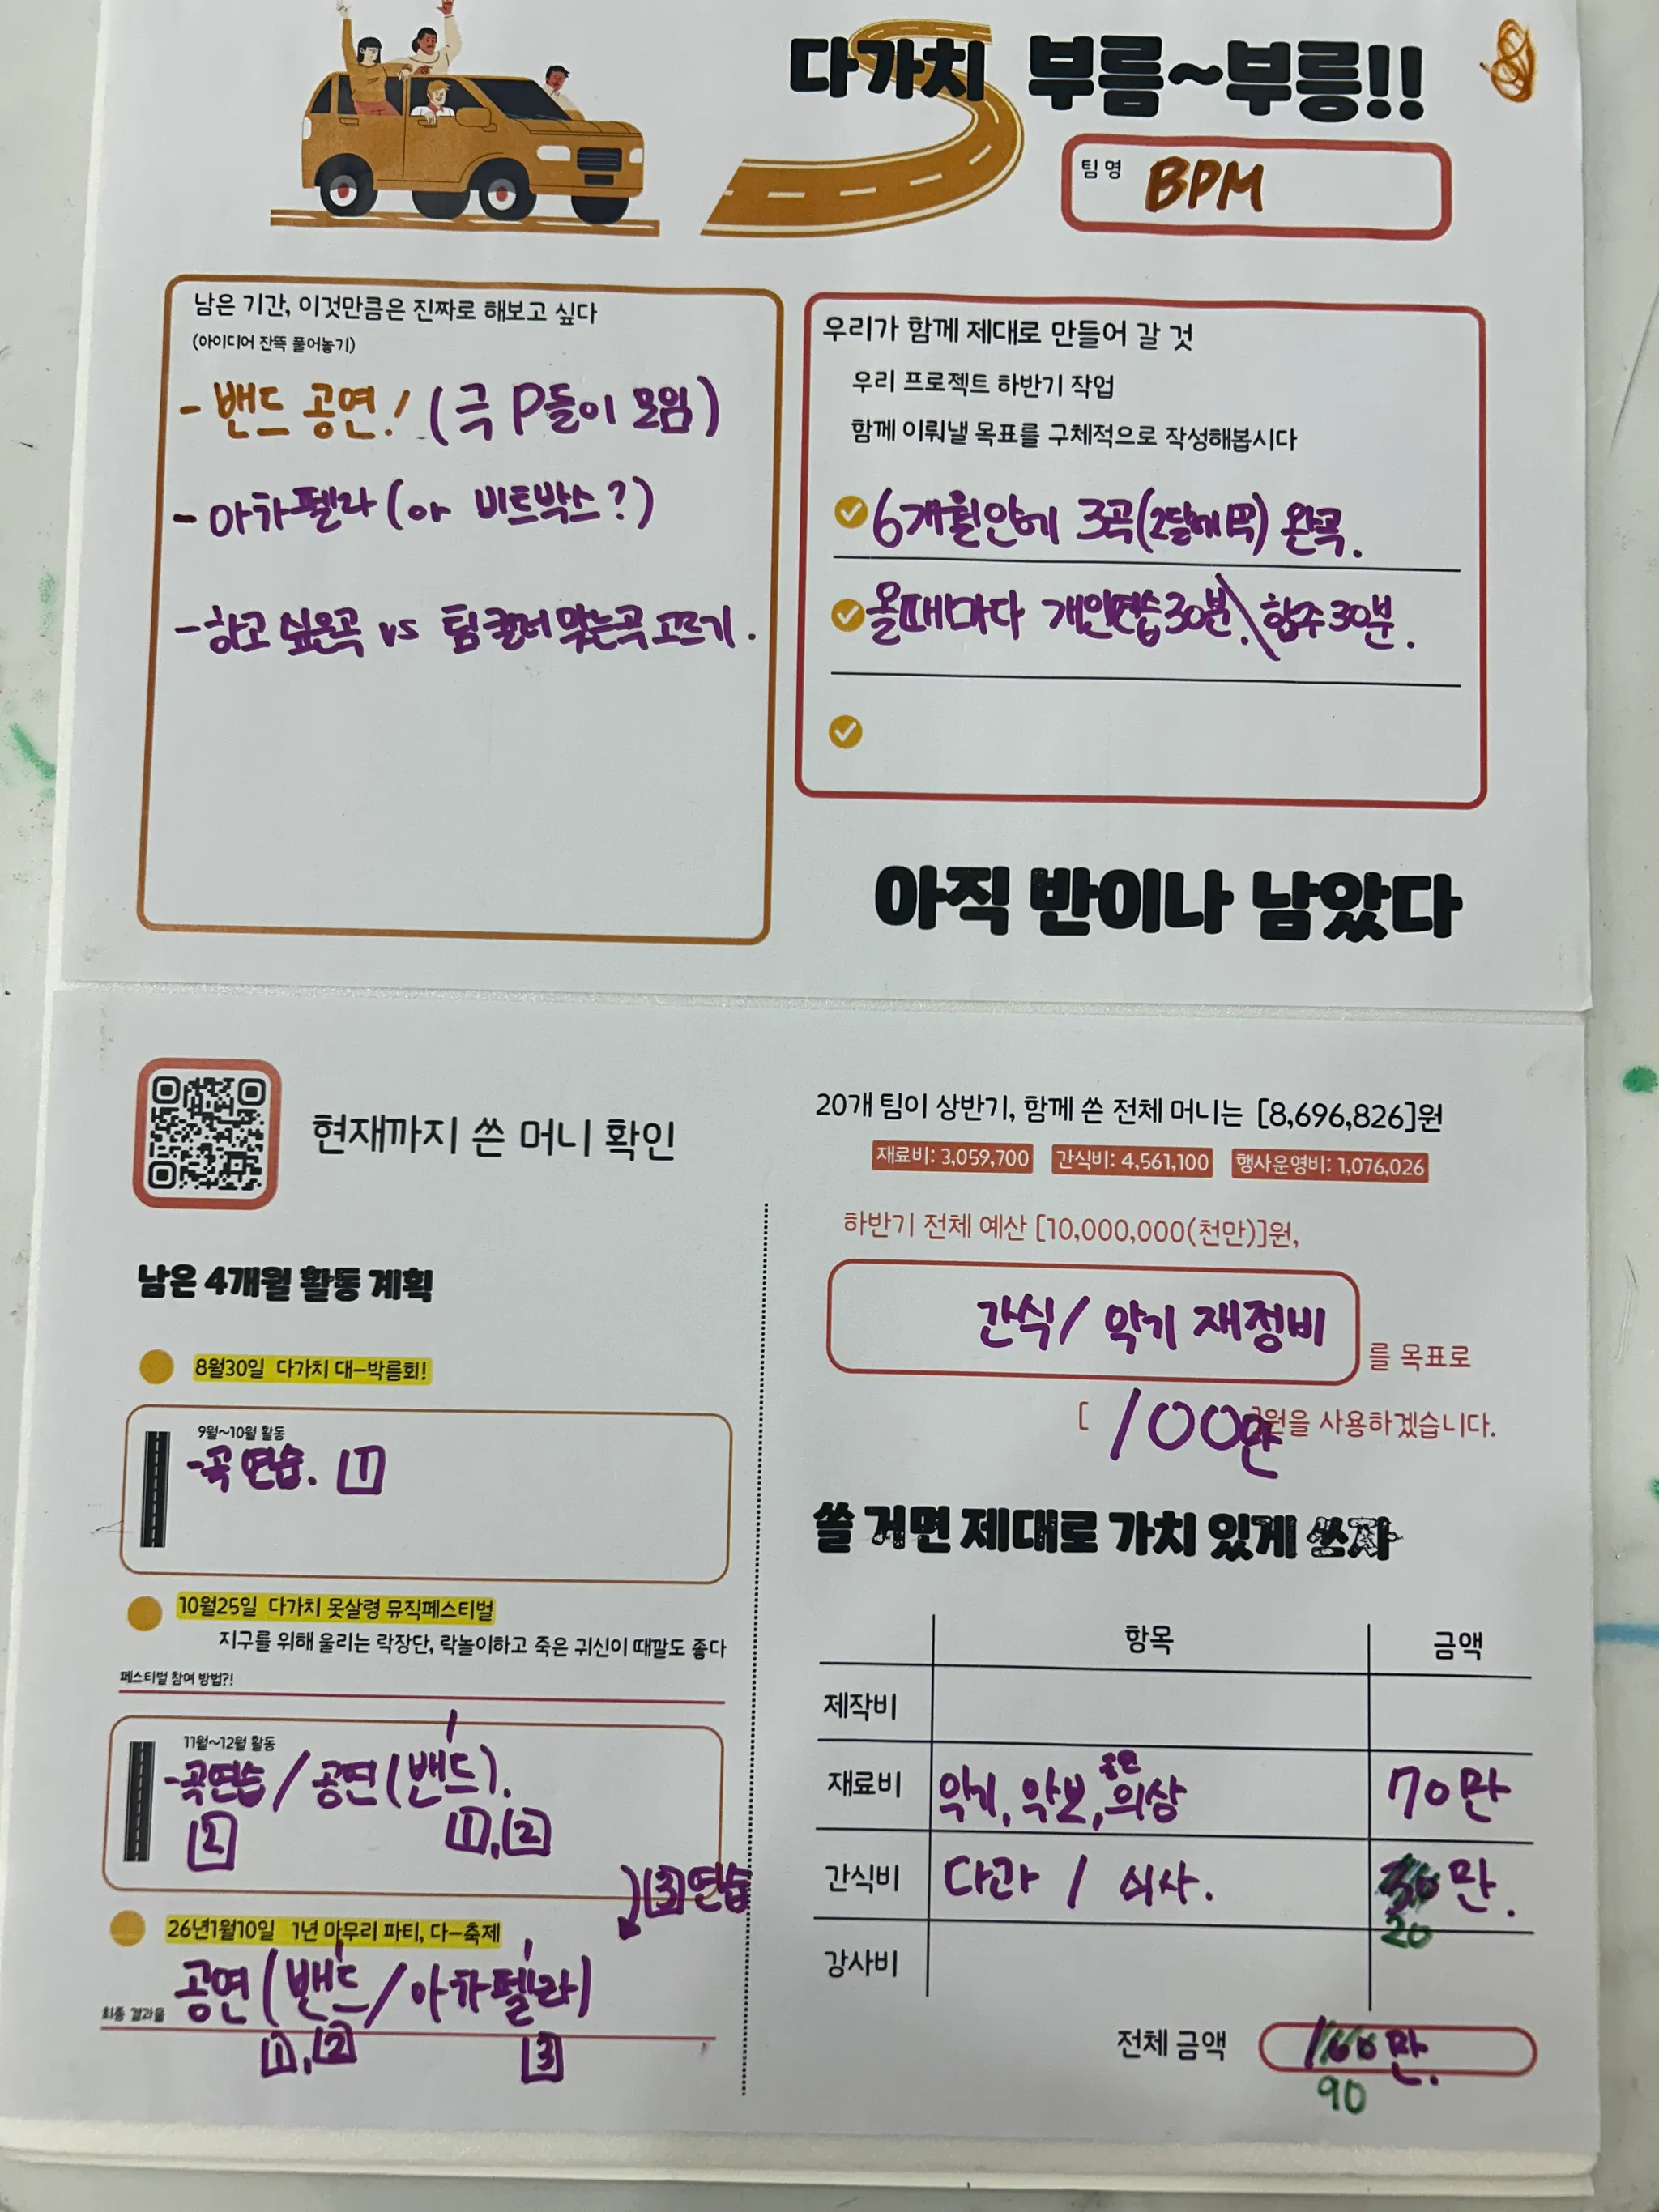 다가치 부름~부릉!!
팀명 BPM
남은 기간, 이것만큼은 진짜로 해보고 싶다
(아이디어 잔뜩 풀어놓기)
- 밴드 공연! (극 P들이 모임)
- 아카펠라 (or 비트박스?)
- 하고 싶은곡 vs 팀컬러 맞는곡 고르기.
우리가 함께 제대로 만들어 갈 것
우리 프로젝트 하반기 작업
함께 이뤄낼 목표를 구체적으로 작성해봅시다
6개월안에 3곡(2달에 1곡) 완곡.
올때마다 개인연습30분 \ 합주30분.
아직 반이나 남았다
현재까지 쓴 머니 확인
남은 4개월 활동 계획
8월30일 다가치 대-박름회!
9월~10월 활동
-곡 연습. 1
10월25일 다가치 못살령 뮤직페스티벌
지구를 위해 울리는 락장단, 락놀이하고 죽은 귀신이 때깔도 좋다
페스티벌 참여 방법?!
11월~12월 활동
-곡연습 / 공연 (밴드).
2 1, 2
3 연습
26년1월10일 1년 마무리 파티, 다-축제
공연 (밴드 / 아카펠라)
최종 결과물
1, 2 3
20개 팀이 상반기, 함께 쓴 전체 머니는 [8,696,826]원
재료비: 3,059,700 간식비: 4,561,100 행사운영비: 1,076,026
하반기 전체 예산 [10,000,000(천만)]원,
간식/ 악기 재정비 를 목표로
[ 100만 ]원을 사용하겠습니다.
쓸 거면 제대로 가치 있게 쓰자
항목 금액
제작비
재료비 악기, 악보, 공연 의상 70만
간식비 다과 / 식사. 30만.
20
강사비
전체 금액 100만.
90